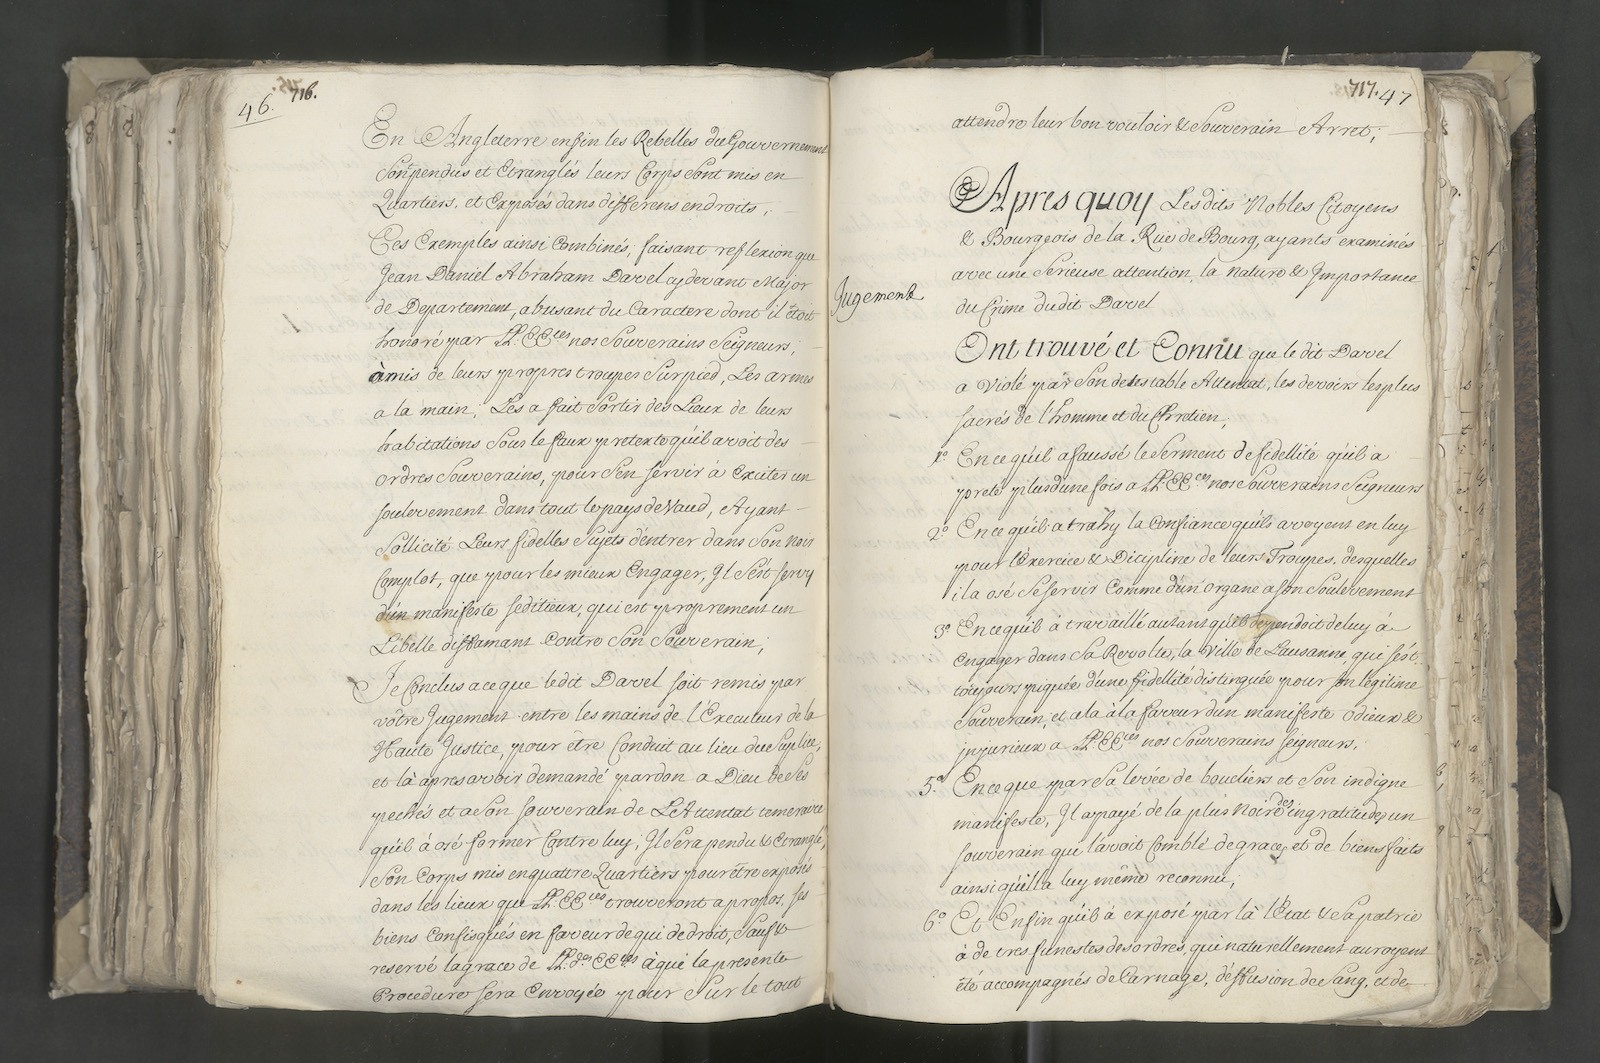 46. 716.
En Angleterre enfin les Rebelles du Gouvernement
Sont pendus et Etranglés leurs Corps Sont mis en
Quartiers, et Exposés dans differens endroits,
Ces Exemples ainsi Combinés, faisant reflexion que
Jean Daniel Abraham Davel cy devant Major
de Departement, abusant du Caractere dont il étoit
honoré par LL. EEces nos Souverains Seigneurs,
à mis de leurs propres troupes Sur pied, Les armes
a la main, Les a fait Sortir des Lieux de leurs
habitations Sous le faux pretexte qu'il avoit des
ordres Souverains, pour S'en servir à Exciter un
soulevement dans tout le pays de Vaud, Ayant
Sollicité Leurs fidelles Sujets d'entrer dans Son Noir
Complot, que pour les mieux Engager, Il S'est servy
d'un manifeste seditieux, qui est proprement un
Libelle diffamant Contre Son Souverain,
Je Conclus a ce que ledit Davel soit remis par
vôtre Jugement entre les mains de l'Executeur de la
Haute Justice, pour être Conduit au lieu du Suplice,
et là apres avoir demandé pardon a Dieu de Ses
pechés et a Son souverain de L'Attentat temeraire
qu'il à osé former Contre luy, Il Sera pendu & Etranglé,
Son Corps mis en quattre Quartiers pour être exposés
dans les lieux que LL. EEces trouveront a propos, ses
biens Confisqués en faveur de qui de droit, Sauf &
reservé la grace de LL. dres EEces à qui la presente
Procedure sera Envoyée pour Sur le tout
717. 47
attendre leur bon vouloir & Souverain Arret;
Apres quoy Lesdits Nobles Citoyens
& Bourgeois de la Rue de Bourg, ayants examinés
avec une Serieuse attention, la nature & Importance
du Crime dudit Davel
Jugement
Ont trouvé et Connu que le dit Davel
a Violé par Son detestable Attentat, les devoirs les plus
sacrés de l'homme et du Chretien,
1o En ce qu'il a faussé le Serment de fidellité qu'il a
preté plus d'une fois a LL. EEces nos Souverains Seigneurs
2o En ce qu'il a trahy la Confiance qu'ils avoyent en luy
pour l'Exercice & Dicipline de leurs Troupes, desquelles
il a osé Se servir Comme d'un organe a son Soulevement
3o En ce qu'il à travaillé autant qu'il dependoit de luy à
engager dans Sa Revolte, la Ville de Lausanne, qui s'est
toujours piquée d'une fidellité distinguée pour son legitime
Souverain, et cela à la faveur d'un manifeste odieux &
injurieux a LL. EEces nos Souverains Seigneurs,
5o En ce que par Sa levée de boucliers et Son indigne
manifeste, Il a payé de la plus Noire des ingratitudes un
souverain qui l'avoit Comblé de graces et de biens faits
ainsi qu'il l'a luy même reconnu,
6o Et Enfin qu'il à exposé par là l'Etat & Sa patrie
à de tres funestes desordres, qui naturellement auroyent
été accompagnés de Carnage, d'effusion de Sang, et de